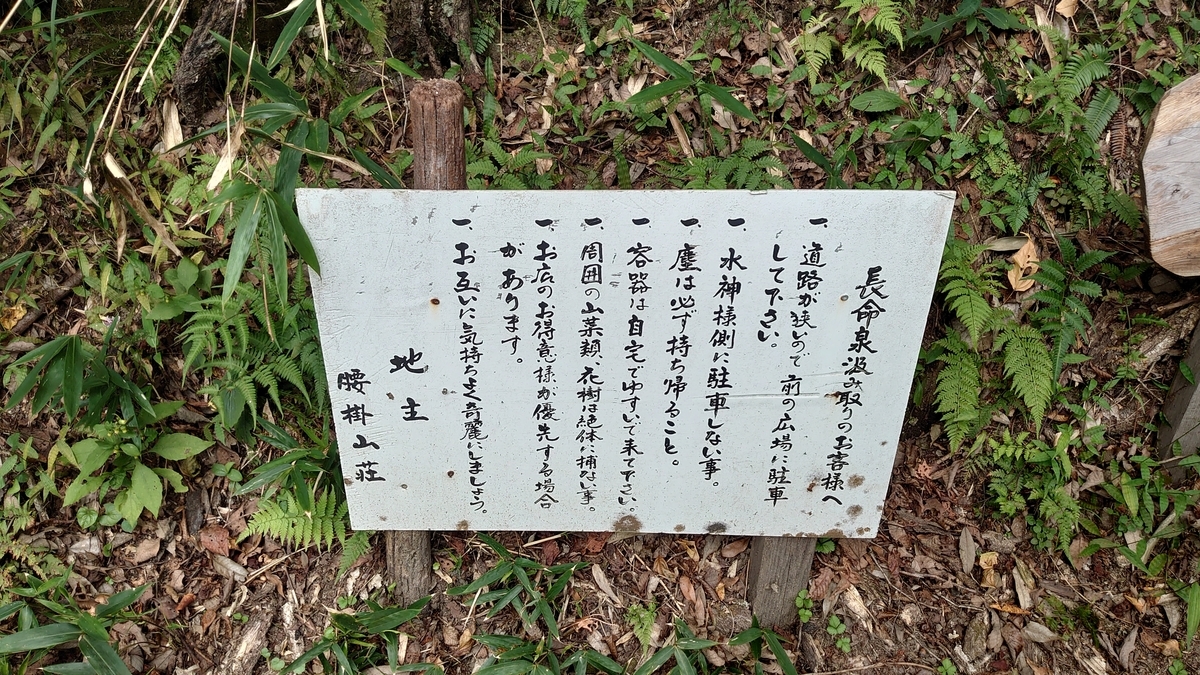 長命泉汲み取りのお客様へ
一、道路が狭いので前の広場に駐車
して下さい。
一、水神様側に駐車しない事。
一、塵は必ず持ち帰ること。
一、容器は自宅でゆすいで来て下さい。
一、周囲の山菜類、花樹は絶体に捕ない事。
一、お店のお得意様が優先する場合
があります。
一、お互いに気持ちよく奇麗にしましょう。
地主
腰掛山荘